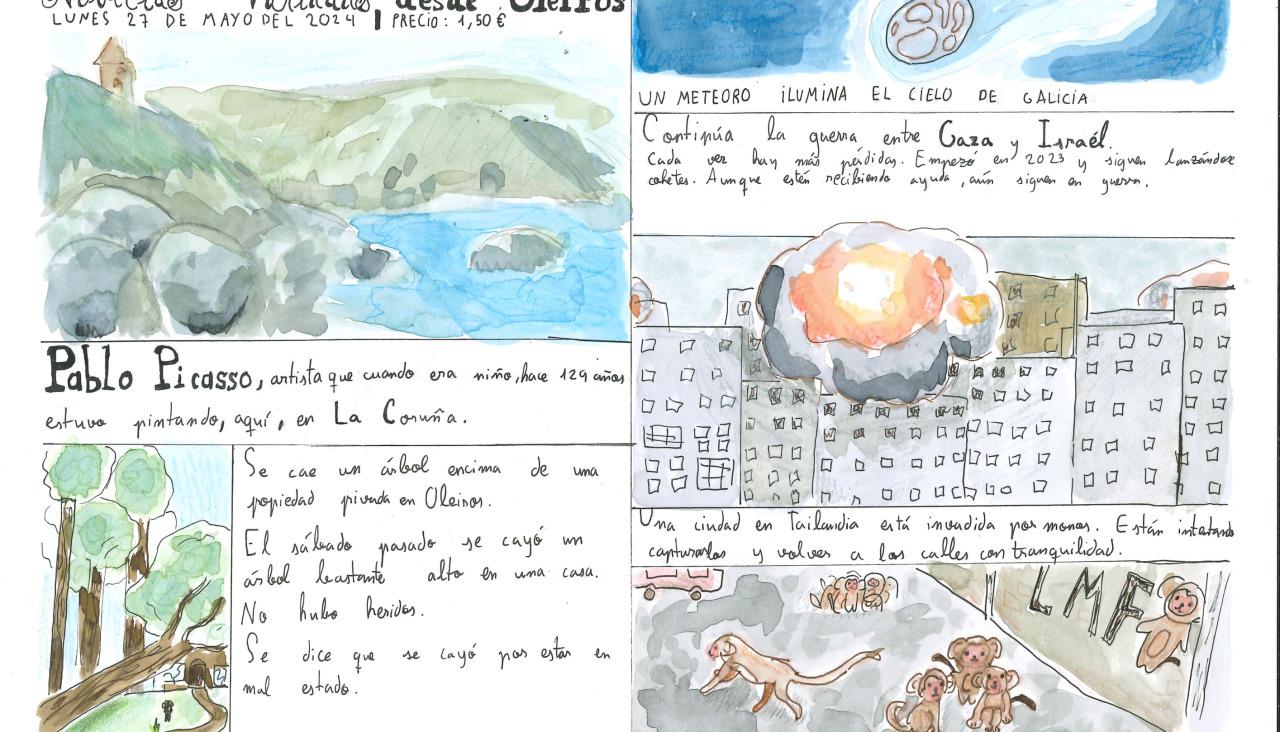 Noticias desde Oleiros
LUNES 27 DE MAYO DEL 2024 | PRECIO: 1,50 €
Pablo Picasso, artista que cuando era niño, hace 129 años
estuvo pintando, aquí, en La Coruña.
Se cae un árbol encima de una
propiedad privada en Oleiros.
El sábado pasado se cayó un
árbol bastante alto en una casa.
No hubo heridos.
Se dice que se cayó por estar en
mal estado.
UN METEORO iLUMINA EL CIELO DE GALICIA
Continúa la guerra entre Gaza y Israél.
Cada vez hay más pérdidas. Empezó en 2023 y siguen lanzándose
cohetes. Aunque estén recibiendo ayuda, aún siguen en guerra.
Una ciudad en Tailandia está invadida por monos. Están intentando
capturarlos y volver a las calles con tranquilidad.
LMF